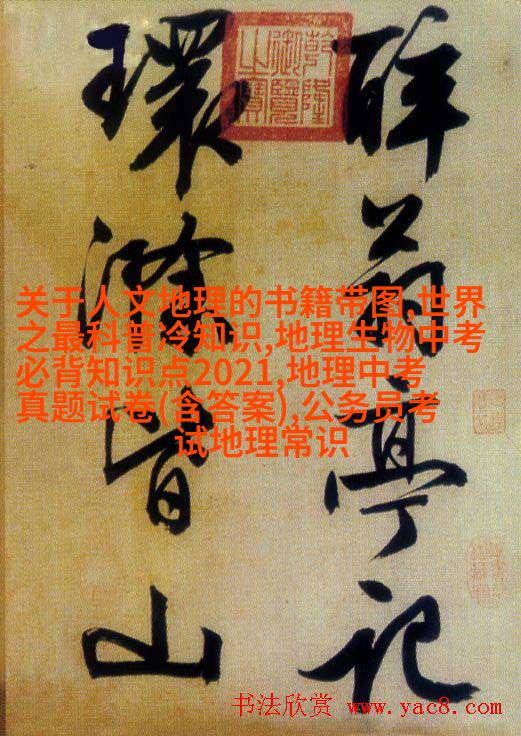 醉翁亭记
環滁皆山
乾隆御覽之寶
关于人文地理的书籍带图,世界
之最科普冷知识,地理生物中考
必背知识点2021,地理中考
真题试卷(含答案),公务员考
试地理常识
书法欣赏 www.yac8.com